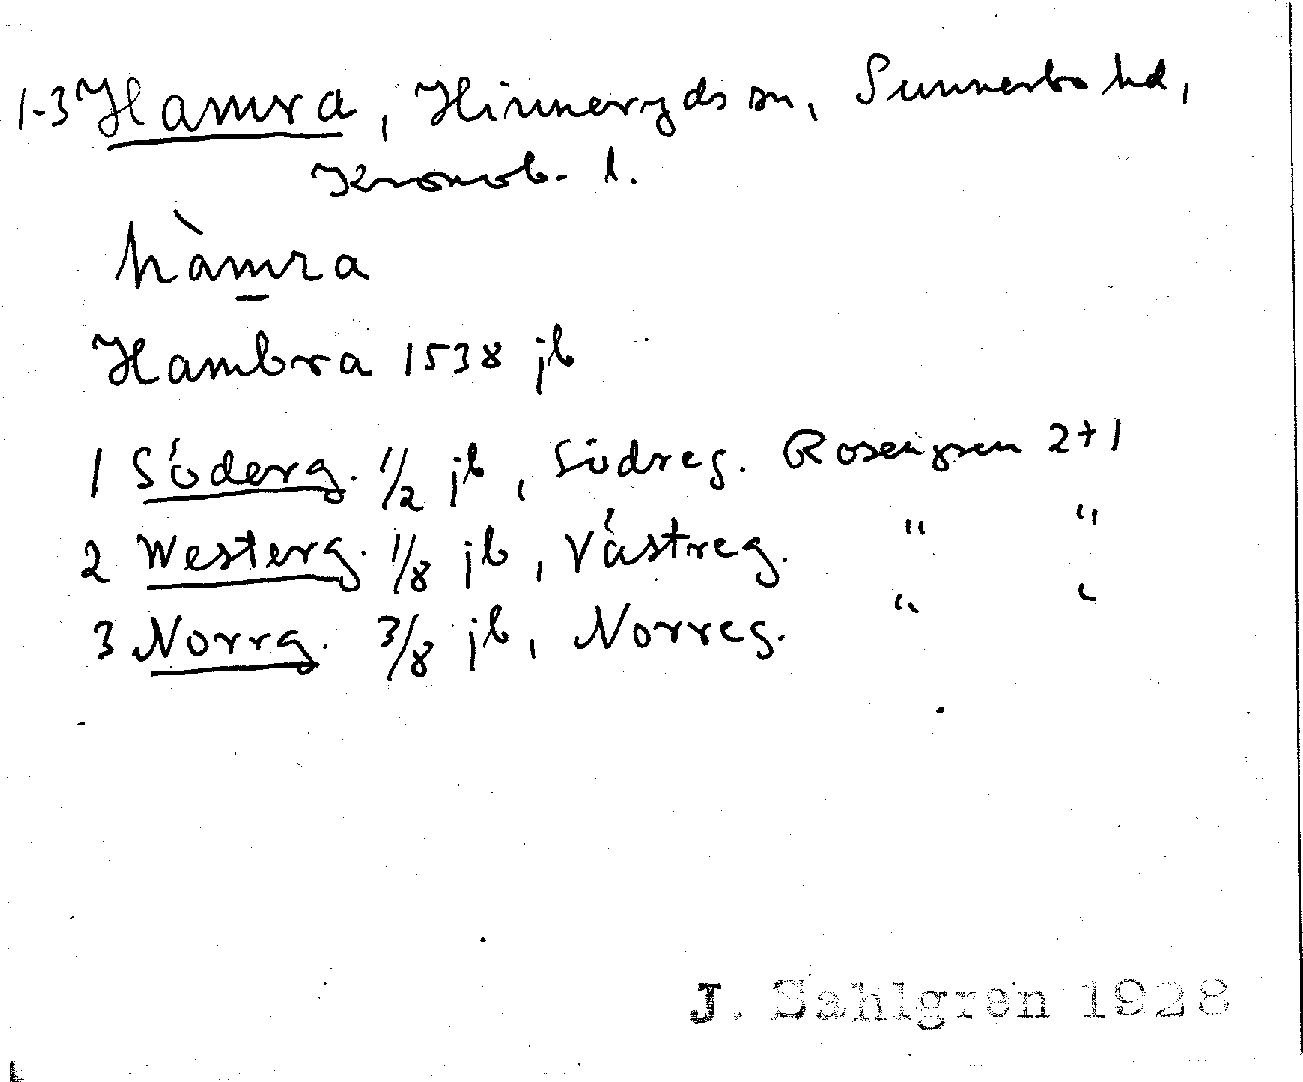 1-3 Hamra, Hinneryds sn, Sunnerbo hd,
Kronob. l.
hàmra
Hambra 1538 jb
1 Söderg. 1/2 jb, Södreg. Rosengren 2+1
2 Westerg. 1/8 jb, Västreg. " "
3 Norrg. 3/8 jb, Norreg. " "
J. Sahlgren 1928